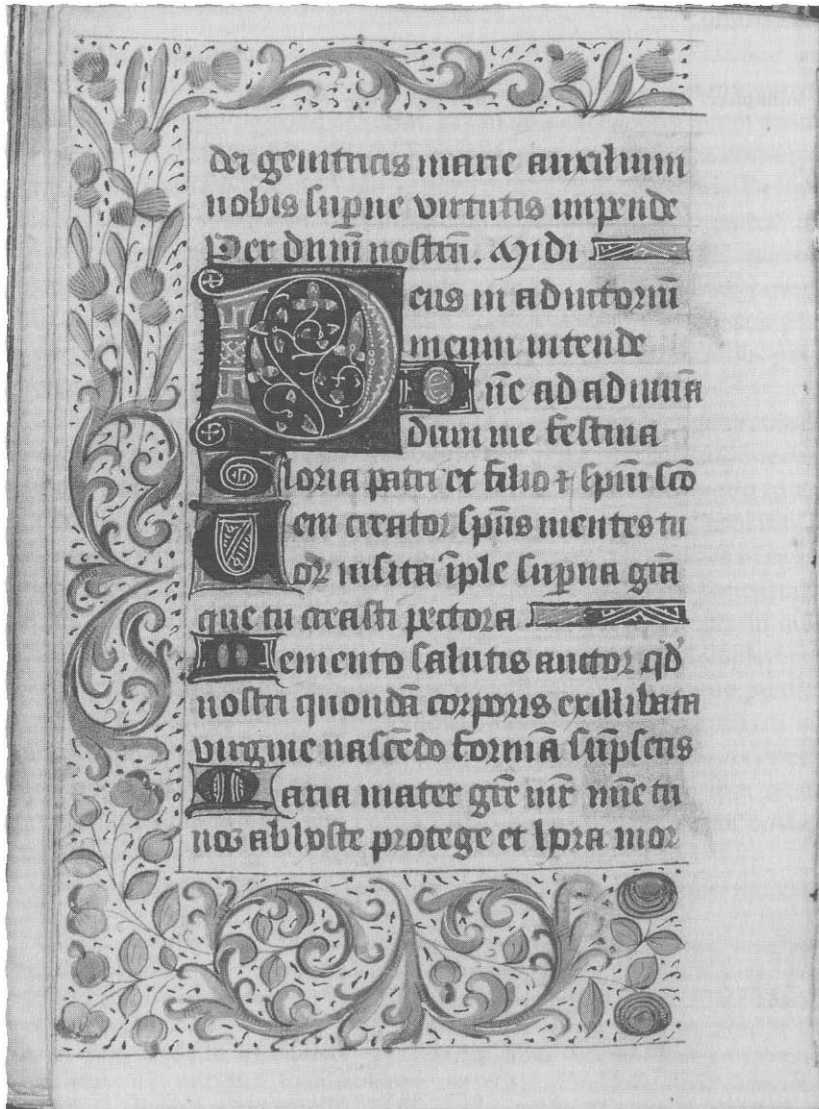 dei genitricis marie auxilium
nobis supne virtutis impende
Per dnm̄ nostrū. Midi
Deus in adiutoriū
meum intende
Dn̄e ad adiuuā
dum me festina
Gloria patri et filio ⁊ spūi scō
Veni creator spūs mentes tu
or visita īple supna grā
que tu creasti pectora
Memento salutis auctor qd'
nostri quondā corporis ex illibata
virgine nascēdo formā sūpseris
Maria mater grē mr̄ mīe tu
nos ab hoste protege et hora mor